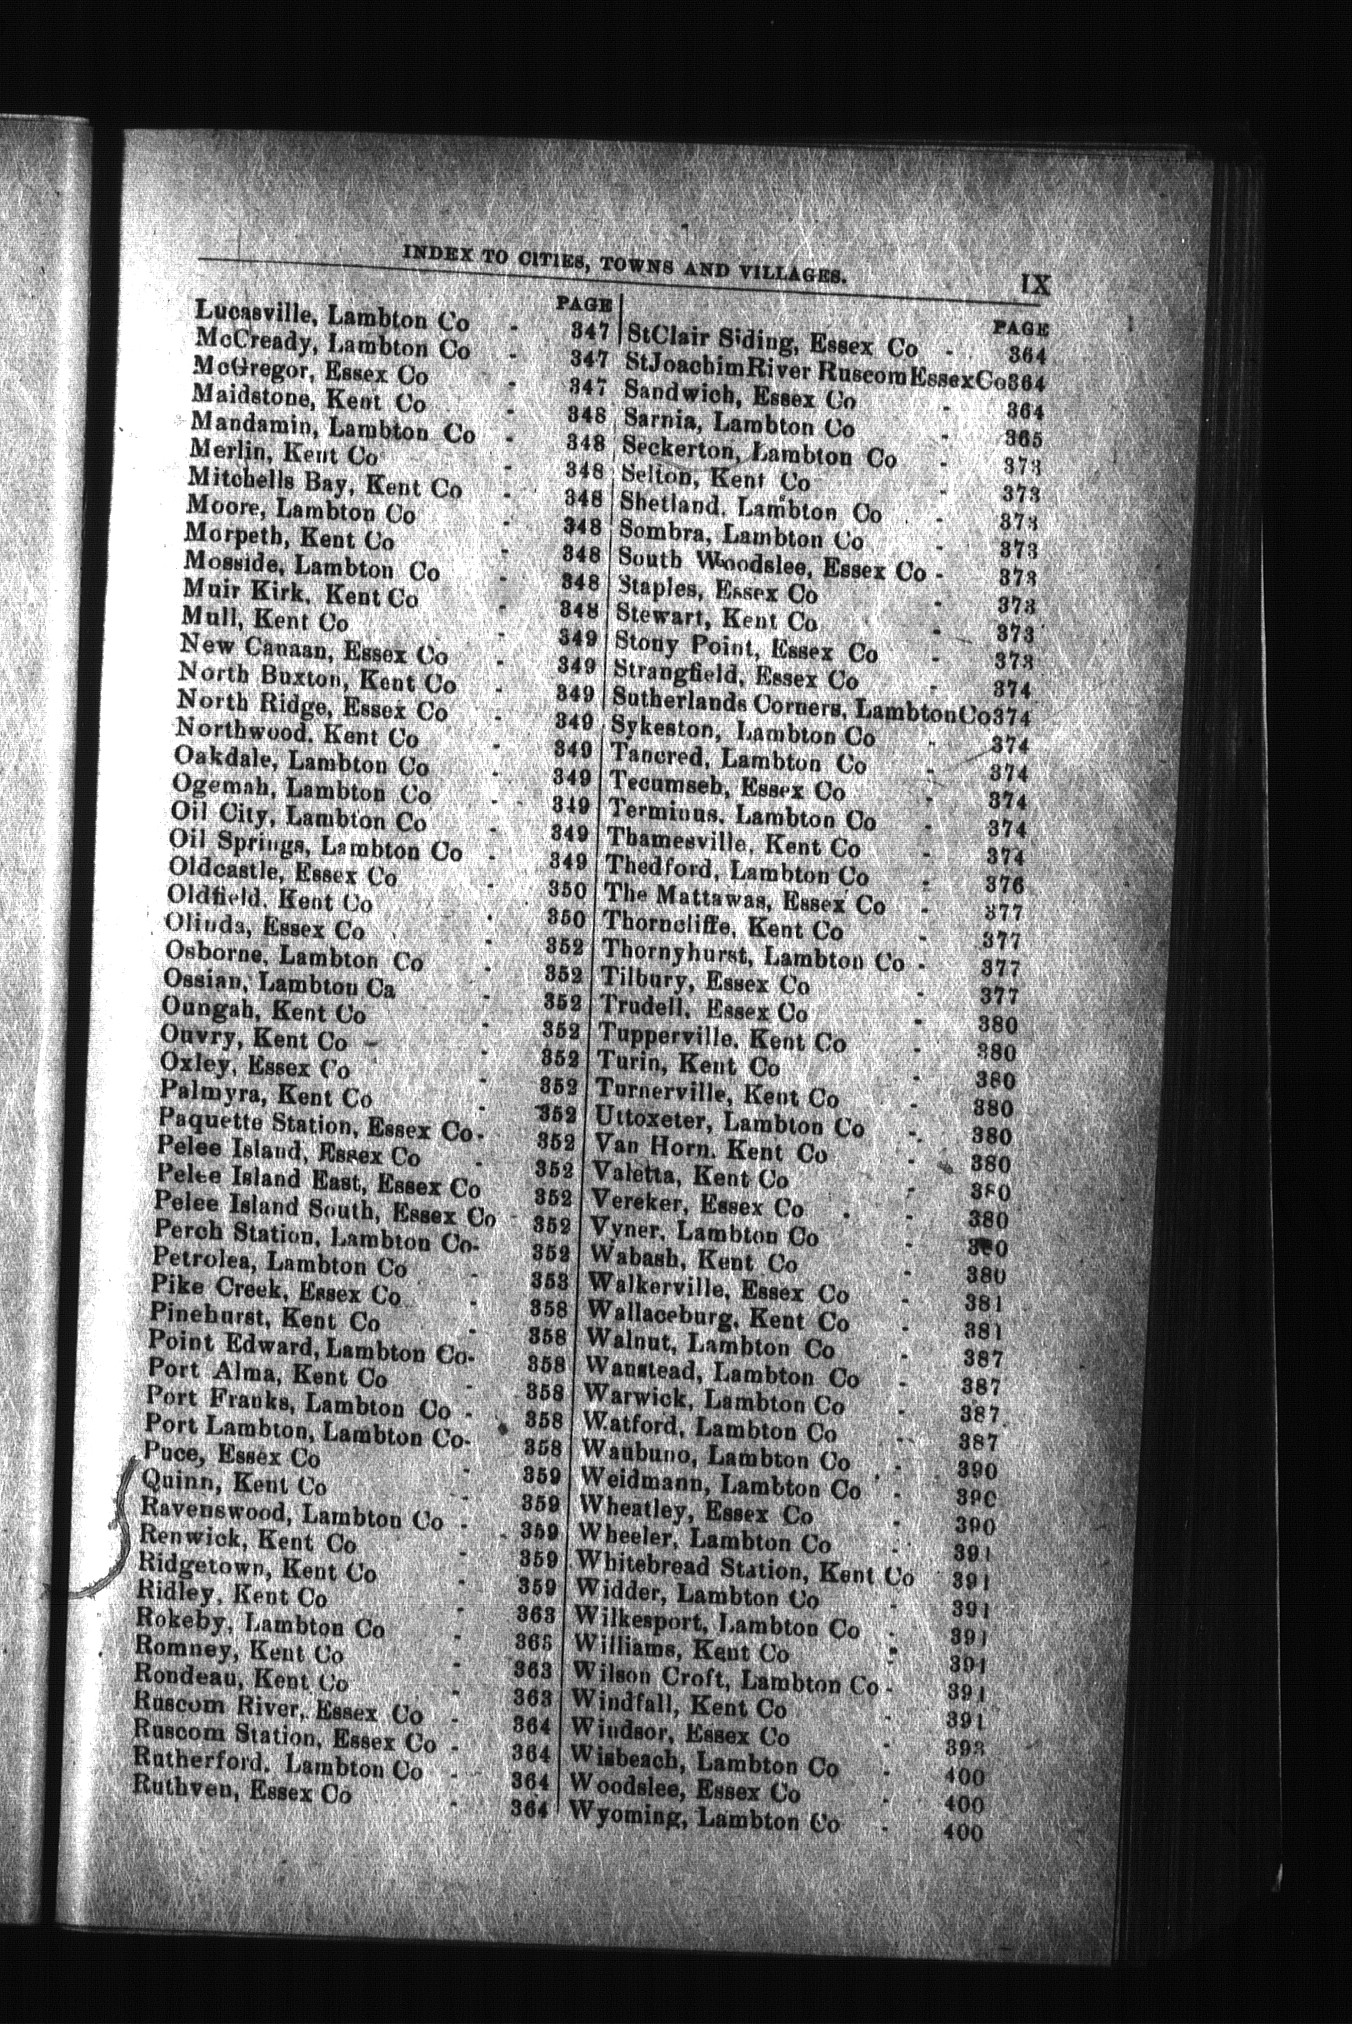 INDEX TO CITIES, TOWNS AND VILLAGES. IX
PAGE
Lucasville, Lambton Co - 347
McCready, Lambton Co - 347
McGregor, Essex Co - 347
Maidstone, Kent Co - 348
Mandamin, Lambton Co - 348
Merlin, Kent Co - 348
Mitchells Bay, Kent Co - 348
Moore, Lambton Co - 348
Morpeth, Kent Co - 348
Mosside, Lambton Co - 348
Muir Kirk, Kent Co - 348
Mull, Kent Co - 349
New Canaan, Essex Co - 349
North Buxton, Kent Co - 349
North Ridge, Essex Co - 349
Northwood, Kent Co - 349
Oakdale, Lambton Co - 349
Ogemah, Lambton Co - 349
Oil City, Lambton Co - 349
Oil Springs, Lambton Co - 349
Oldcastle, Essex Co - 350
Oldfield, Kent Co - 350
Olinda, Essex Co - 352
Osborne, Lambton Co - 352
Ossian, Lambton Ca - 352
Oungah, Kent Co - 352
Ouvry, Kent Co - 352
Oxley, Essex Co - 352
Palmyra, Kent Co - 352
Paquette Station, Essex Co - 352
Pelee Island, Essex Co - 352
Pelee Island East, Essex Co 352
Pelee Island South, Essex Co - 352
Perch Station, Lambton Co - 352
Petrolea, Lambton Co - 353
Pike Creek, Essex Co - 358
Pinehurst, Kent Co - 358
Point Edward, Lambton Co - 358
Port Alma, Kent Co - 358
Port Franks, Lambton Co - 358
Port Lambton, Lambton Co - 358
Puce, Essex Co - 359
Quinn, Kent Co - 359
Ravenswood, Lambton Co - 359
Renwick, Kent Co - 359
Ridgetown, Kent Co - 359
Ridley, Kent Co - 363
Rokeby, Lambton Co - 363
Romney, Kent Co - 363
Rondeau, Kent Co - 363
Ruscom River, Essex Co - 364
Ruscom Station, Essex Co - 364
Rutherford, Lambton Co - 364
Ruthven, Essex Co - 364
PAGE
StClair Siding, Essex Co - 364
StJoachimRiver RuscomEssexCo364
Sandwich, Essex Co - 364
Sarnia, Lambton Co - 365
Seckerton, Lambton Co - 373
Selton, Kent Co - 373
Shetland, Lambton Co - 373
Sombra, Lambton Co - 373
South Woodslee, Essex Co - 373
Staples, Essex Co - 373
Stewart, Kent Co - 373
Stony Point, Essex Co - 373
Strangfield, Essex Co - 374
Sutherlands Corners, LambtonCo374
Sykeston, Lambton Co - 374
Tancred, Lambton Co - 374
Tecumseh, Essex Co - 374
Terminus, Lambton Co - 374
Thamesville, Kent Co - 374
Thedford, Lambton Co - 376
The Mattawas, Essex Co - 377
Thorncliffe, Kent Co - 377
Thornyhurst, Lambton Co - 377
Tilbury, Essex Co - 377
Trudell, Essex Co - 380
Tupperville, Kent Co - 380
Turin, Kent Co - 380
Turnerville, Kent Co - 380
Uttoxeter, Lambton Co - 380
Van Horn, Kent Co - 380
Valetta, Kent Co - 380
Vereker, Essex Co - 380
Vyner, Lambton Co - 380
Wabash, Kent Co - 380
Walkerville, Essex Co - 381
Wallaceburg, Kent Co - 381
Walnut, Lambton Co - 387
Wanstead, Lambton Co - 387
Warwick, Lambton Co - 387
Watford, Lambton Co - 387
Waubuno, Lambton Co - 390
Weidmann, Lambton Co - 390
Wheatley, Essex Co - 390
Wheeler, Lambton Co - 391
Whitebread Station, Kent Co 391
Widder, Lambton Co - 391
Wilkesport, Lambton Co - 391
Williams, Kent Co - 391
Wilson Croft, Lambton Co - 391
Windfall, Kent Co - 391
Windsor, Essex Co - 393
Wisbeach, Lambton Co - 400
Woodslee, Essex Co - 400
Wyoming, Lambton Co - 400